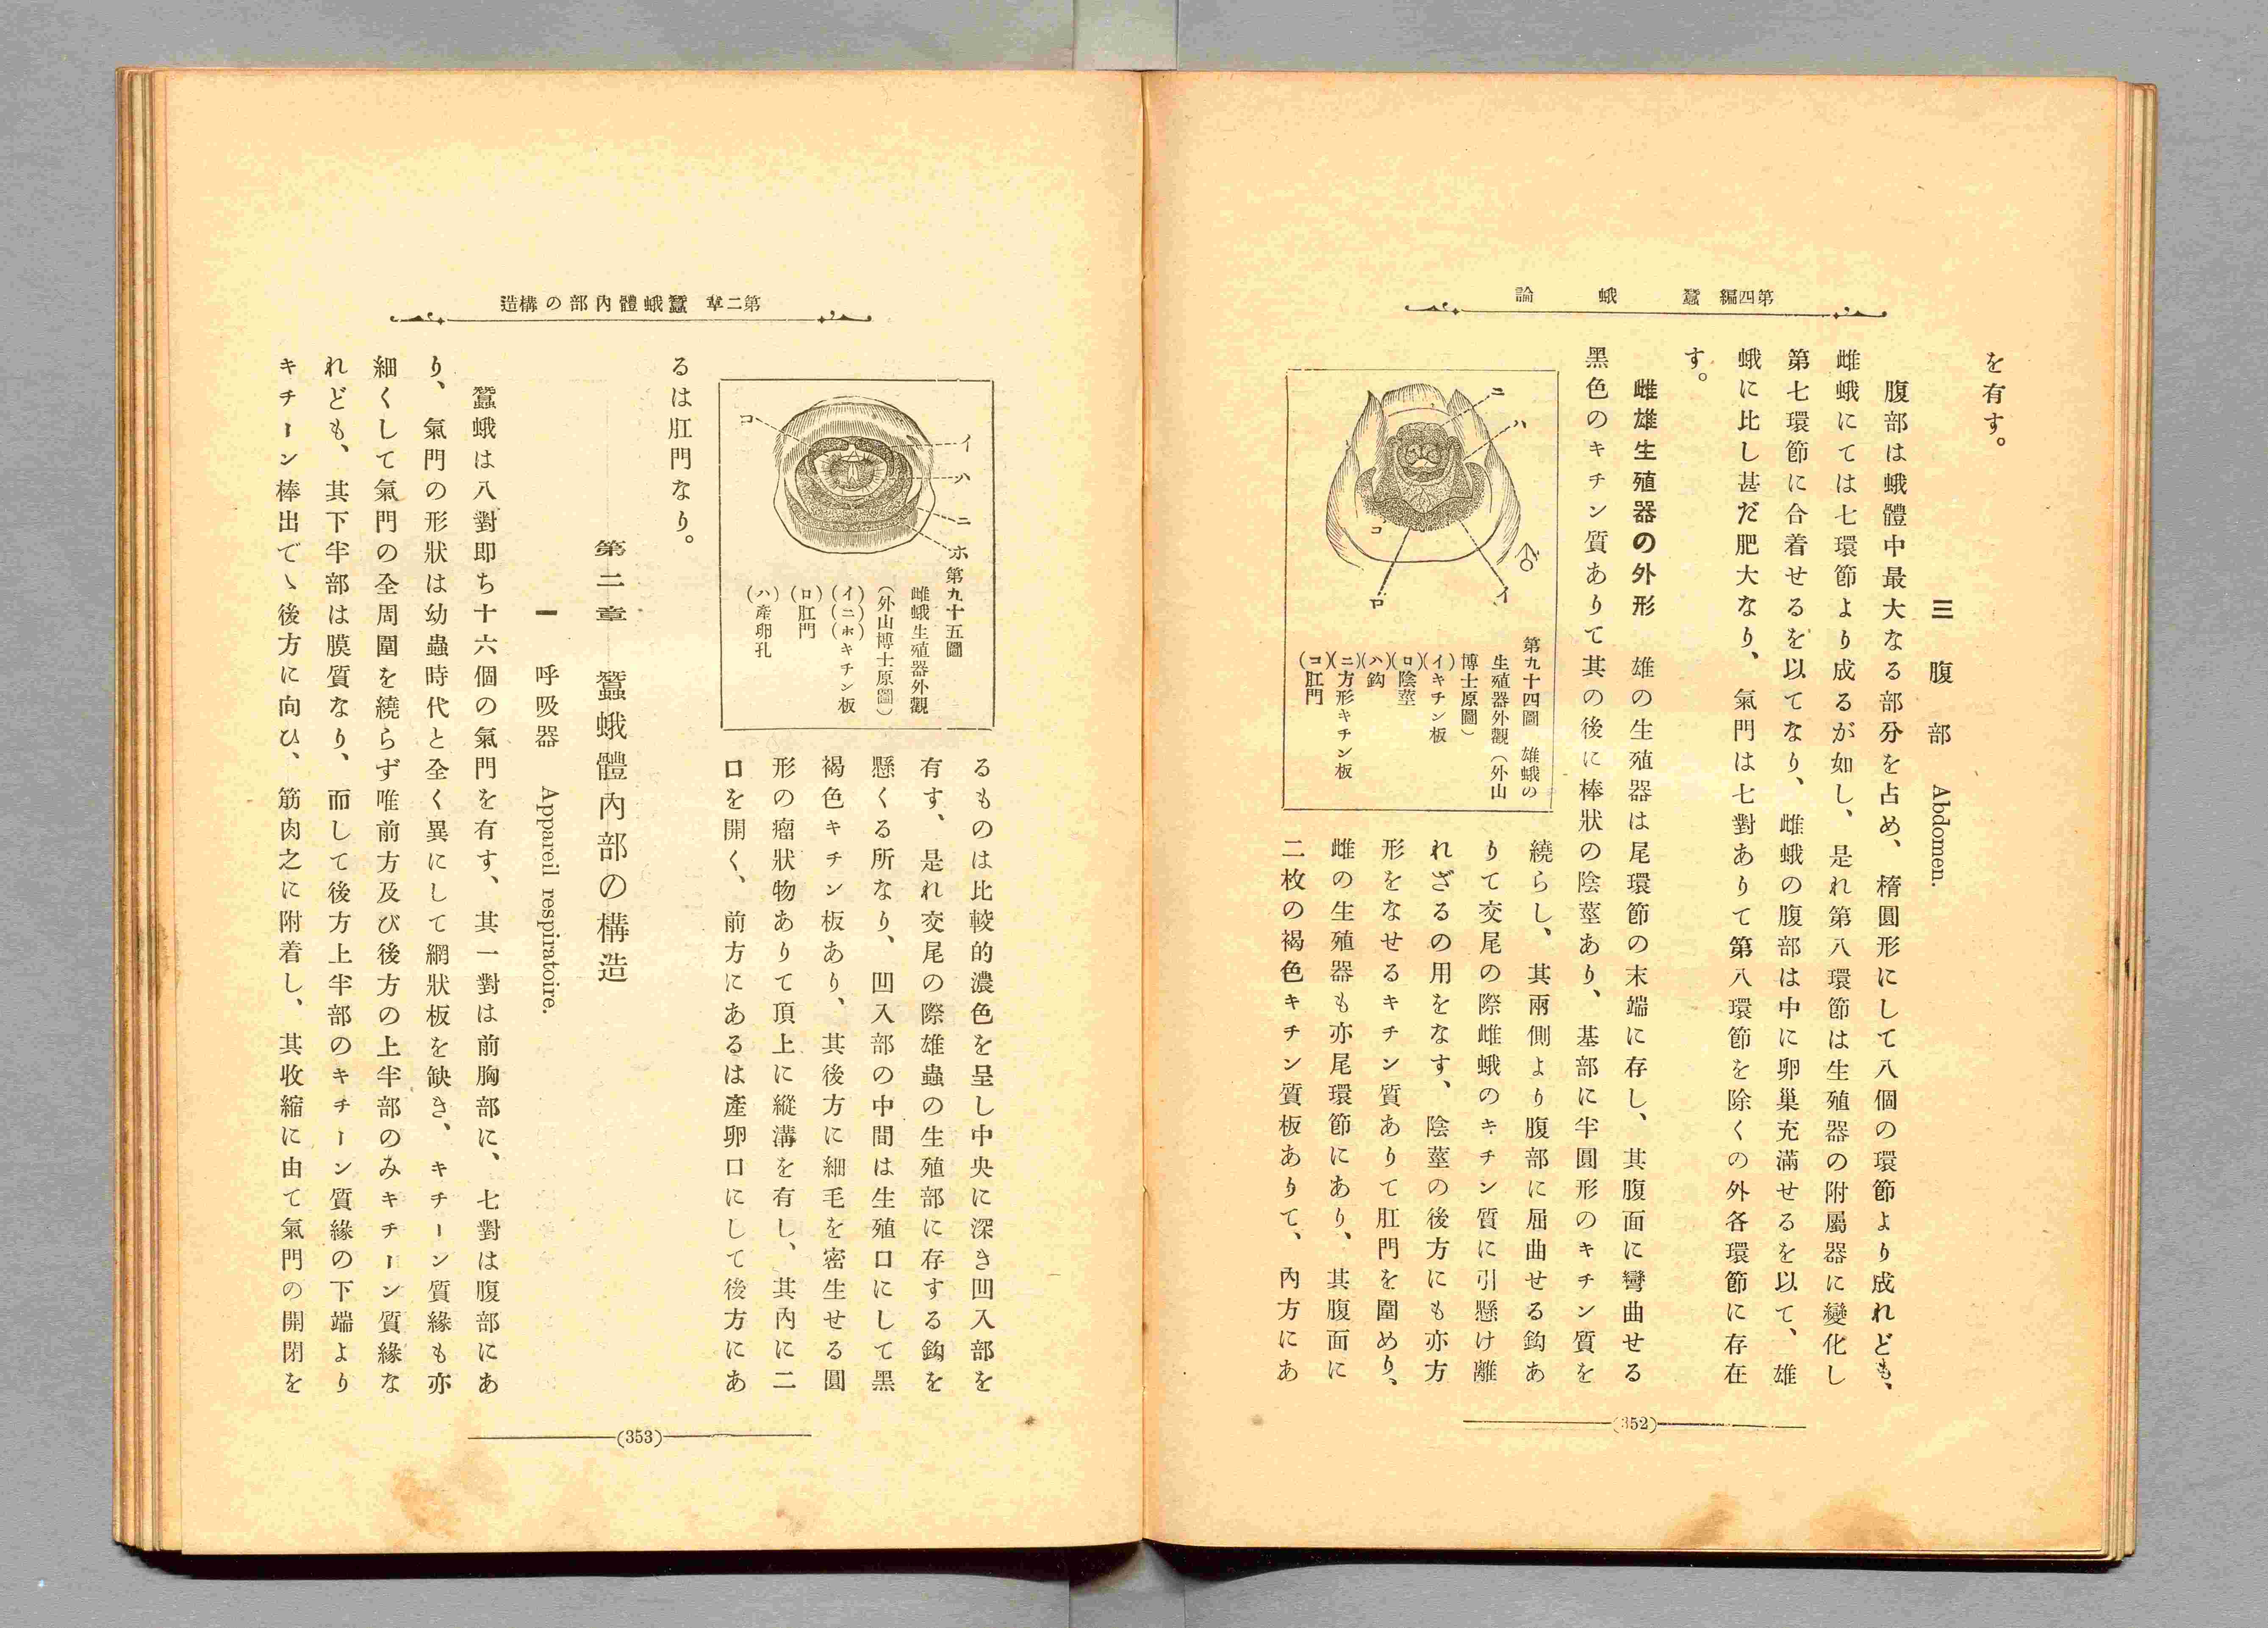 第四編 蠶蛾論
を有す。
三 腹部 Abdomen.
腹部は蛾體中最大なる部分を占め、楕圓形にして八個の環節より成れども、
雌蛾にては七環節より成るが如し、是れ第八環節は生殖器の附屬器に變化し
第七環節に合着せるを以てなり、雌蛾の腹部は中に卵巢充滿せるを以て、雄
蛾に比し甚だ肥大なり、氣門は七對ありて第八環節を除くの外各環節に存在
す。
雌雄生殖器の外形 雄の生殖器は尾環節の末端に存し、其腹面に彎曲せる
黑色のキチン質ありて其の後に棒狀の陰莖あり、基部に半圓形のキチン質を
繞らし、其兩側より腹部に屈曲せる鈎あ
りて交尾の際雌蛾のキチン質に引懸け離
れざるの用をなす、陰莖の後方にも亦方
形をなせるキチン質ありて肛門を圍めり、
雌の生殖器も亦尾環節にあり、其腹面に
二枚の褐色キチン質板ありて、內方にあ
ニ
ハ
コ
イ
ロ
♂
第九十四圖 雄蛾の
生殖器外觀(外山
博士原圖)
(イ)キチン板
(ロ)陰莖
(ハ)鈎
(ニ)方形キチン板
(コ)肛門
(352)
第二章 蠶蛾體內部の構造
コ
イ
ハ
ニ
ホ
第九十五圖
雌蛾生殖器外觀
(外山博士原圖)
(イ)(ニ)(ホ)キチン板
(ロ)肛門
(ハ)產卵孔
るものは比較的濃色を呈し中央に深き凹入部を
有す、是れ交尾の際雄蟲の生殖部に存する鈎を
懸くる所なり、凹入部の中間は生殖口にして黑
褐色キチン板あり、其後方に細毛を密生せる圓
形の瘤狀物ありて頂上に縱溝を有し、其內に二
口を開く、前方にあるは產卵口にして後方にあ
るは肛門なり。
第二章 蠶蛾體內部の構造
一 呼吸器 Appareil respiratoire.
蠶蛾は八對即ち十六個の氣門を有す、其一對は前胸部に、七對は腹部にあ
り、氣門の形狀は幼蟲時代と全く異にして網狀板を缺き、キチーン質緣も亦
細くして氣門の全周圍を繞らず唯前方及び後方の上半部のみキチーン質緣な
れども、其下半部は膜質なり、而して後方上半部のキチーン質緣の下端より
キチーン棒出でゝ後方に向ひ、筋肉之に附着し、其收縮に由て氣門の開閉を
(353)